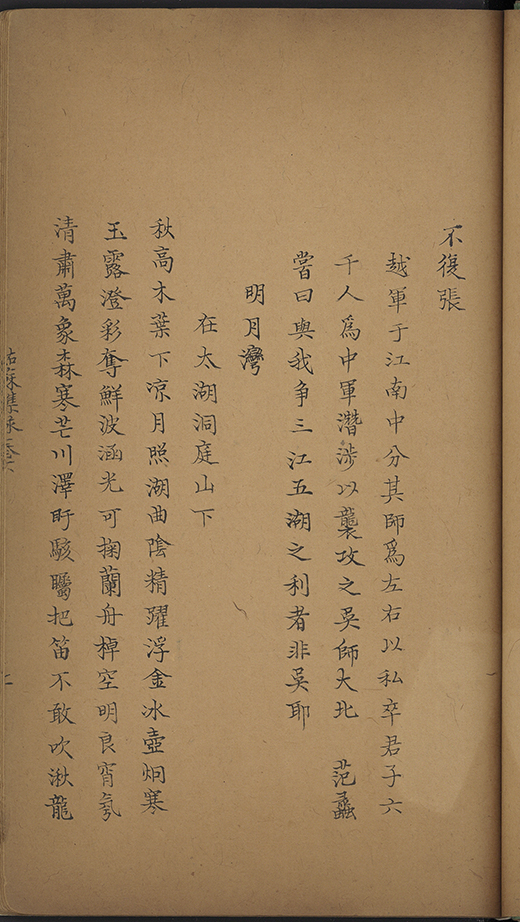 不復張
越軍于江南中分其師爲左右以私卒君子六
千人爲中軍潛涉以襲攻之吳師大北　范蠡
嘗曰與我爭三江五湖之利者非吳耶
明月灣
在太湖洞庭山下
秋高木葉下凉月照湖曲陰精躍浮金冰壺炯寒
玉露澄彩奪鮮波涵光可掬蘭舟棹空明良宵氛
清肅萬象森寒芒川澤盱駭矚把笛不敢吹湫龍